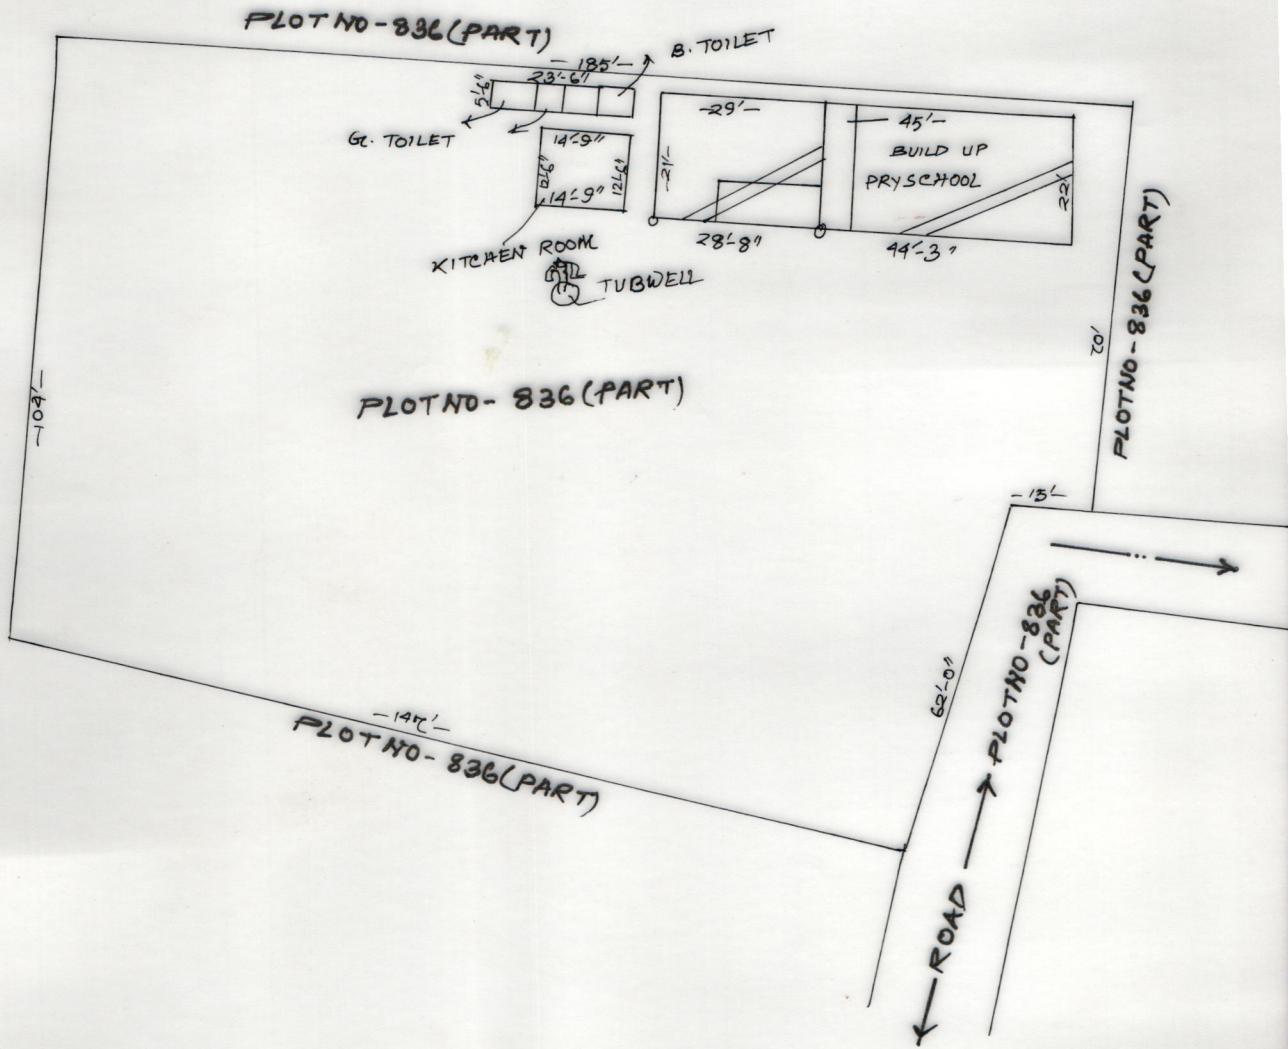 PLOT NO-836(PART)
-185'-
B. TOILET
23'-6"
5'-6"
G. TOILET
14'-9"
12'-6"
12'-6"
14'-9"
KITCHEN ROOM
TUBWELL
-29'-
-21'-
28'-8"
-45'-
BUILD UP
PRYSCHOOL
22'
44'-3"
PLOTNO-836(PART)
70'
-104'-
PLOTNO-836(PART)
-15'-
PLOTNO-836
(PART)
62'-0"
-147'-
PLOTNO-836(PART)
ROAD